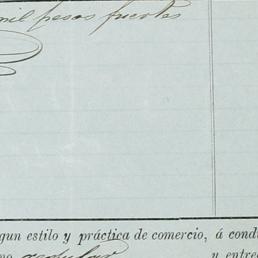 mil pesos fuertes
gun estilo y práctica de comercio, á condi
regular y entre